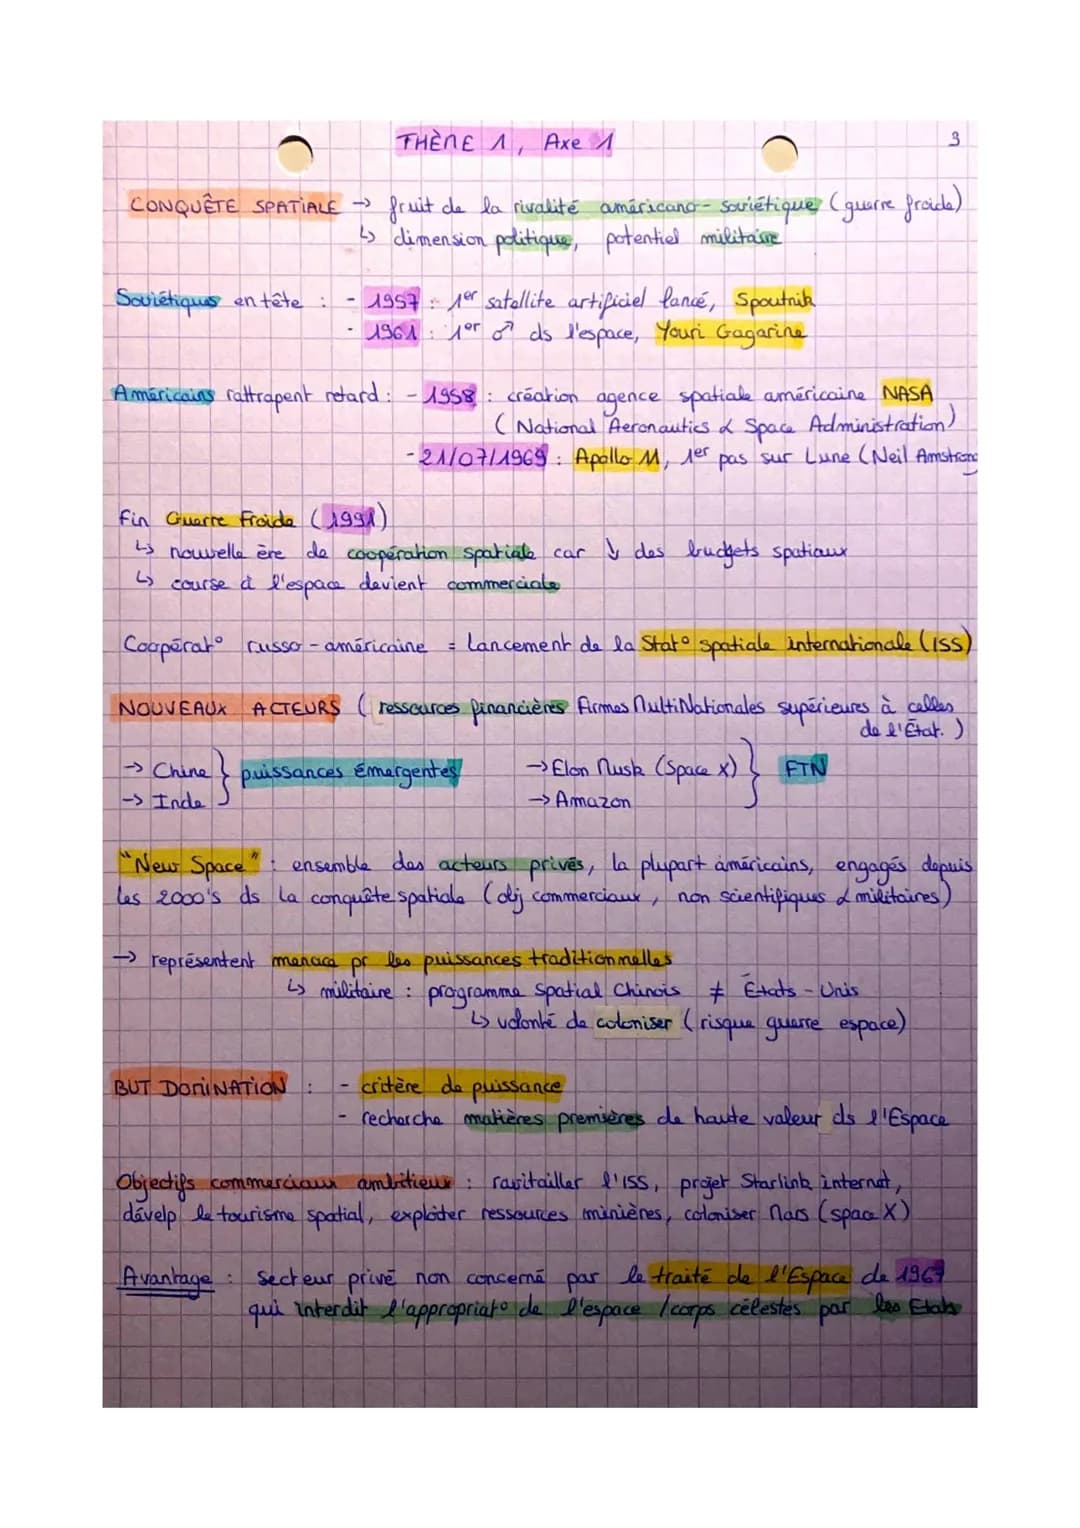 THÈME 1, Axe 1
3
CONQUÊTE SPATIALE → fruit de la rivalité américano-soviétique (guerre froide)
↳ dimension politique, potentiel militaire
Soviétiques en tête : - 1957 : 1er satellite artificiel lancé, Spoutnik
- 1961 : 1er ♂ ds l'espace, Youri Gagarine
Américains rattrapent retard : - 1958 : création agence spatiale américaine NASA
(National Aeronautics & Space Administration)
- 21/07/1969 : Apollo 11, 1er pas sur Lune (Neil Amstrong
Fin Guerre Froide (1991)
↳ nouvelle ère de coopération spatiale car ↓ des budgets spatiaux
↳ course à l'espace devient commerciale
Coopérat° russo-américaine = Lancement de la Stat° spatiale internationale (ISS)
NOUVEAUX ACTEURS (ressources financières Firmes MultiNationales supérieures à celles
de l'État.)
→ Chine } puissances émergentes → Elon Musk (Space X) } FTN
→ Inde → Amazon
"New Space" : ensemble des acteurs privés, la plupart américains, engagés depuis
les 2000's ds la conquête spatiale (obj commerciaux, non scientifiques & militaires)
→ représentent menace pr les puissances traditionnelles
↳ militaire : programme spatial Chinois ≠ États-Unis
↳ volonté de coloniser (risque guerre espace)
BUT DOMINATION : - critère de puissance
- recherche matières premières de haute valeur ds l'Espace
Objectifs commerciaux ambitieux : ravitailler l'ISS, projet Starlink internet,
dévelp le tourisme spatial, exploiter ressources minières, coloniser Mars (space X)
Avantage : secteur privé non concerné par le traité de l'Espace de 1967
qui interdit l'appropriat° de l'espace / corps célestes par les Etats